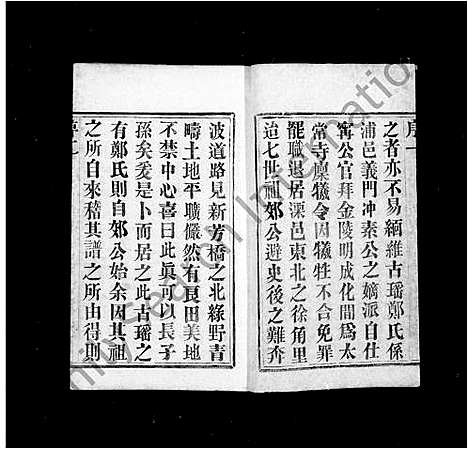 序一
之者亦不易緬維古瑶鄭氏係
浦邑義門冲素公之嫡派自仕
寗公官拜金陵明成化間爲太
常寺廩犧令因犧牲不合免罪
罷職退居溧邑東北之徐角里
迨七世祖郊公避吏後之難奔
波道路見新芳橋之北綠野青
疇土地平曠儼然有良田美地
不禁中心喜曰此眞可以長子
孫矣爰是卜而居之此古瑶之
有鄭氏則自郊公始余因其祖
之所自來稽其譜之所由得則
序二
FamilySearch International